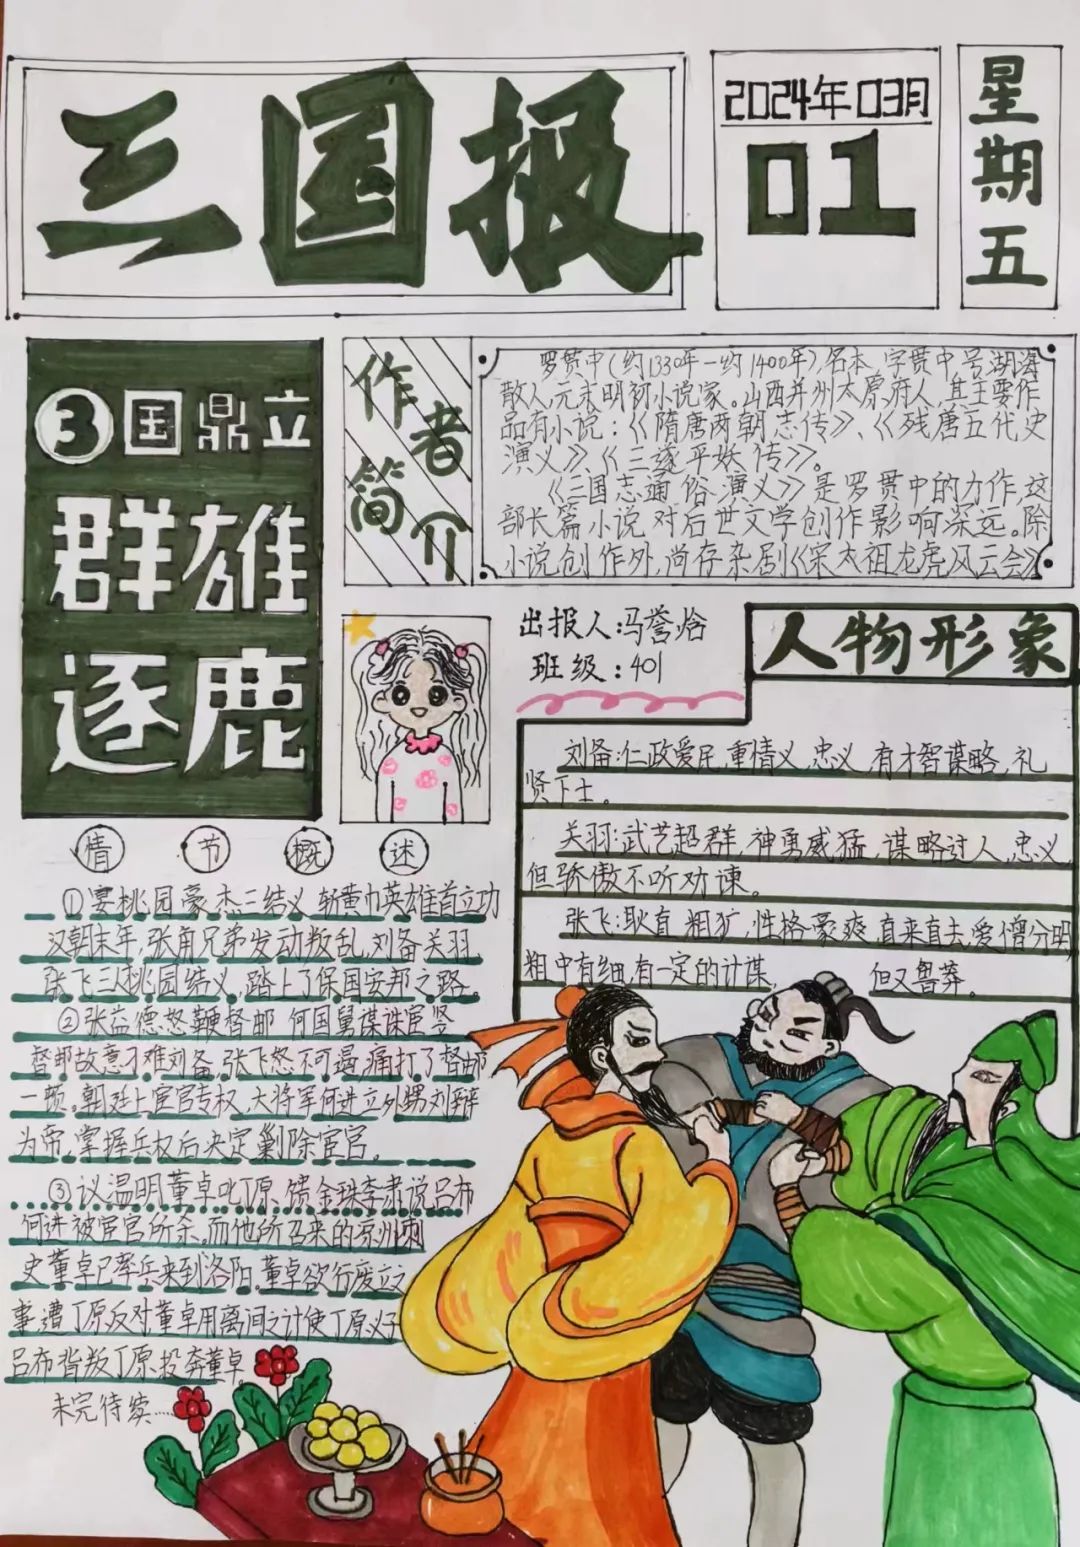 三国报
2024年03月
01
星期五
3国鼎立
群雄
逐鹿
作者简介
罗贯中(约1330年—约1400年),名本,字贯中,号湖海
散人,元末明初小说家。山西并州太原府人,其主要作
品有小说:《隋唐两朝志传》、《残唐五代史
演义》、《三遂平妖传》。
《三国志通俗演义》是罗贯中的力作,这
部长篇小说对后世文学创作影响深远。除
小说创作外,尚存杂剧《宋太祖龙虎风云会》
出报人:马誉
班级:401
人物形象
刘备:仁政爱民,重情义,忠义,有才智谋略,礼
贤下士。
关羽:武艺超群,神勇威猛,谋略过人,忠义,
但骄傲不听劝谏。
张飞:耿直,粗犷,性格豪爽,直来直去,爱憎分明,
粗中有细,有一定的计谋,但又鲁莽。
情节概述
①宴桃园豪杰三结义 斩黄巾英雄首立功
汉朝末年,张角兄弟发动叛乱,刘备、关羽、
张飞三人桃园结义,踏上了保国安邦之路。
②张益德怒鞭督邮 何国舅谋诛宦竖
督邮故意刁难刘备,张飞怒不可遏,痛打了督邮
一顿。朝廷上宦官专权,大将军何进立外甥刘辩
为帝,掌握兵权后决定剿除宦官。
③议温明董卓叱丁原 馈金珠李肃说吕布
何进被宦官所杀。而他所召来的凉州刺
史董卓已率兵来到洛阳。董卓欲行废立之
事遭丁原反对董卓用离间之计使丁原义子
吕布背叛丁原,投奔董卓。
未完待续……